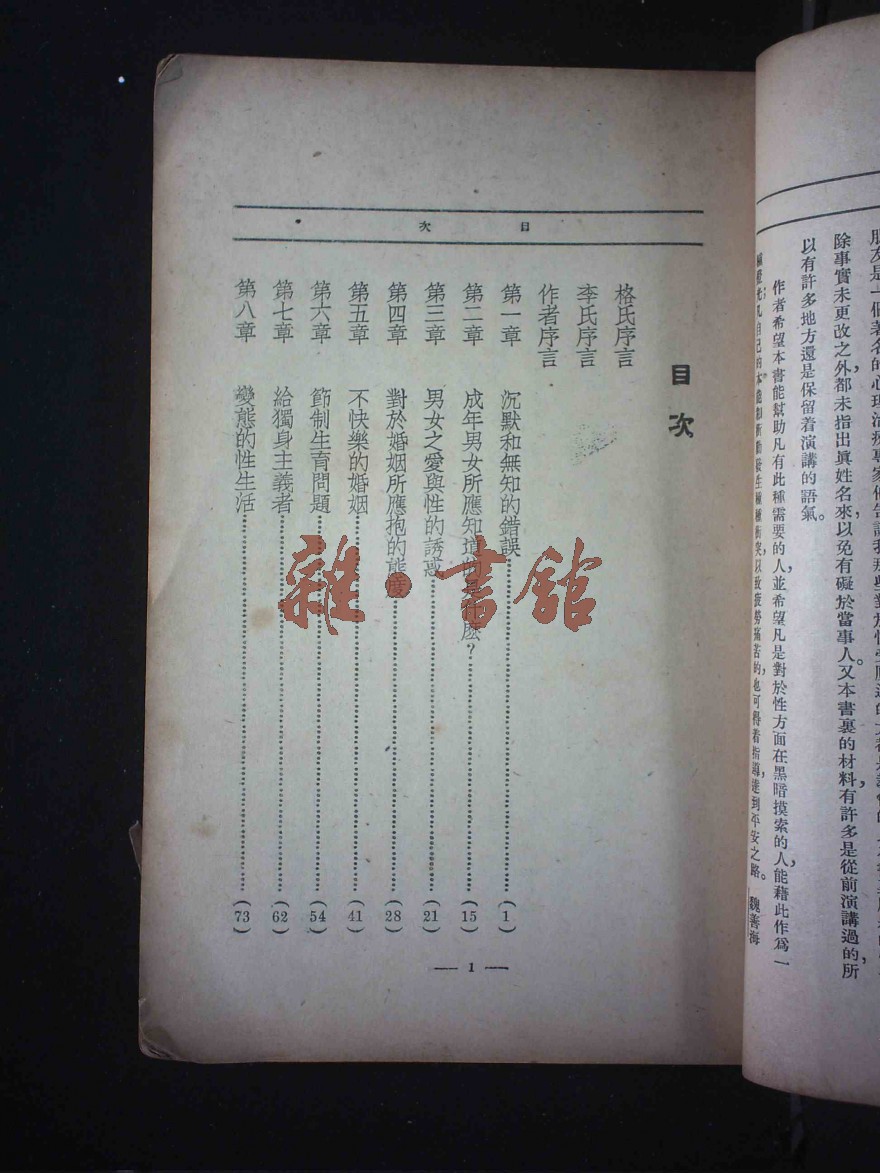 朋友是一個著名的心理治療專家他告訴我那些對於性
除事實未更改之外，都未指出眞姓名來，以免有礙於當事人。又本書裏的材料，有許多是從前演講過的，所
以有許多地方還是保留着演講的語氣。
作者希望本書能幫助凡有此種需要的人，並希望凡是對於性方面在黑暗摸索的人，能藉此作爲一
自己的本能
衝突，以致疲勞痛苦的，也可得着指導，達到平安之路。 魏善海
目次
目次
格氏序言
李氏序言
作者序言
第一章 沉默和無知的錯誤……(1)
第二章 成年男女所應知道的是什麽？……(15)
第三章 男女之愛與性的誘惑……(21)
第四章 對於婚姻所應抱的態度……(28)
第五章 不快樂的婚姻……(41)
第六章 節制生育問題……(54)
第七章 給獨身主義者……(62)
第八章 變態的性生活……(73)
— 1 —
雜·書舘